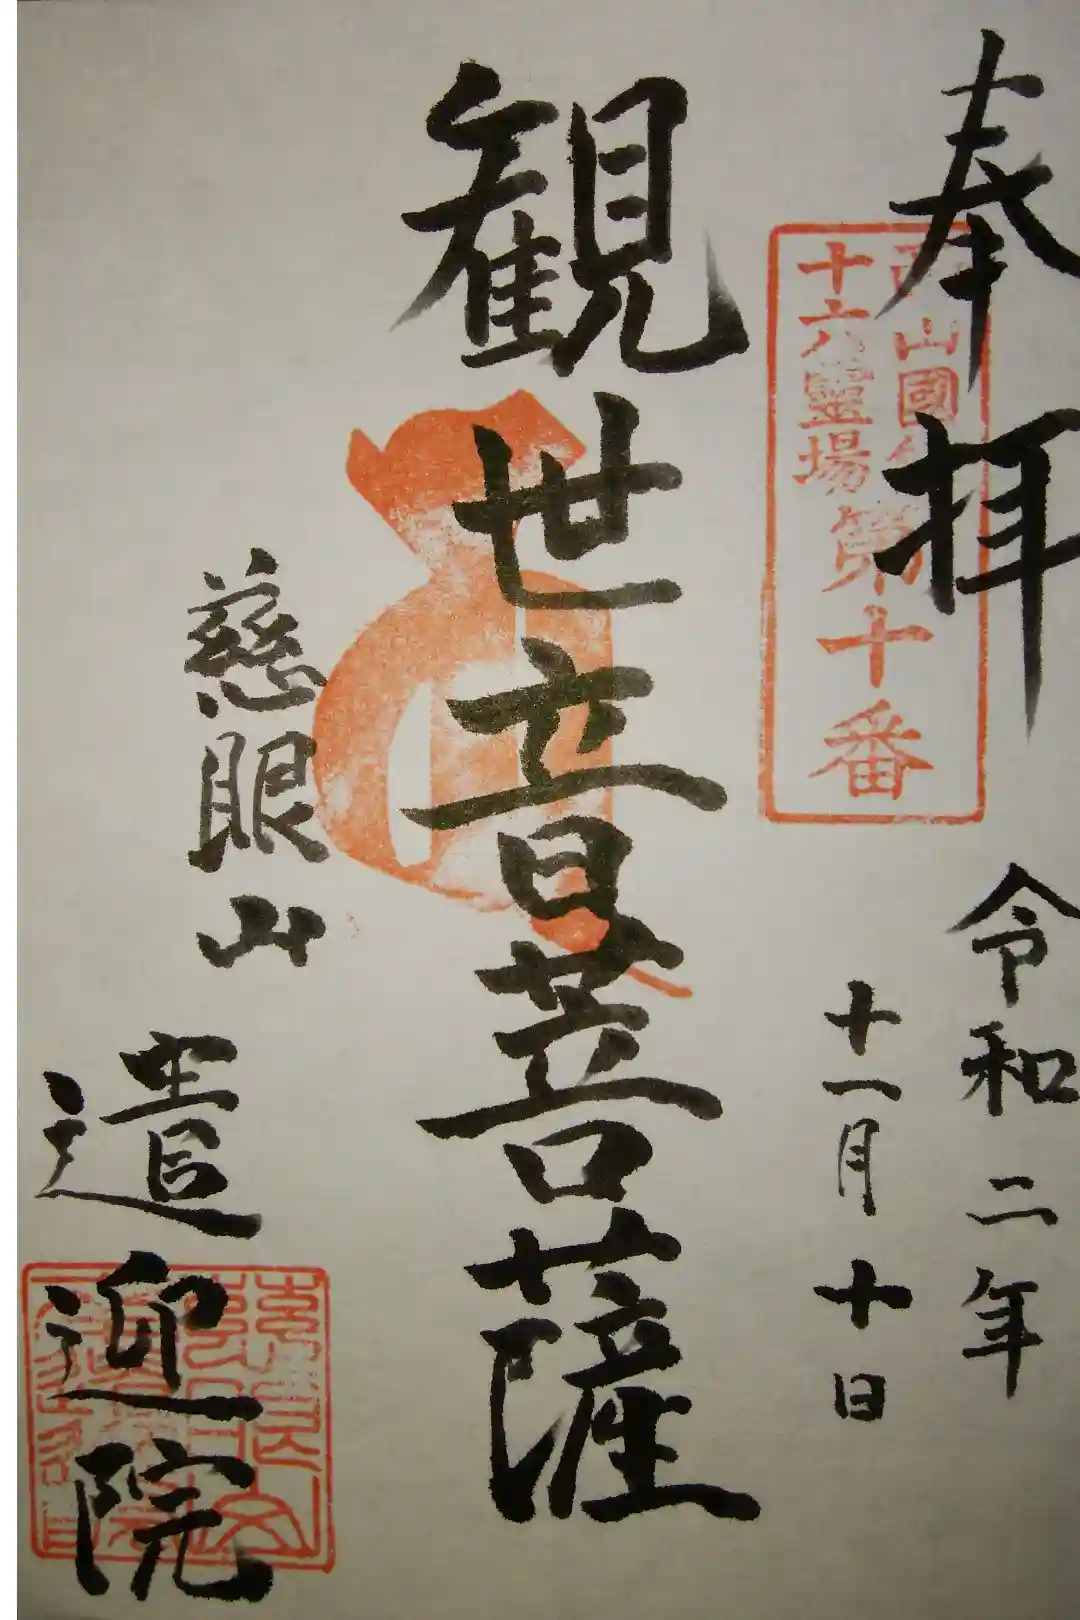 奉拝
山國
十六霊場
第十番
令和二年
十一月十日
観世音菩薩
慈眼山
遣迎院